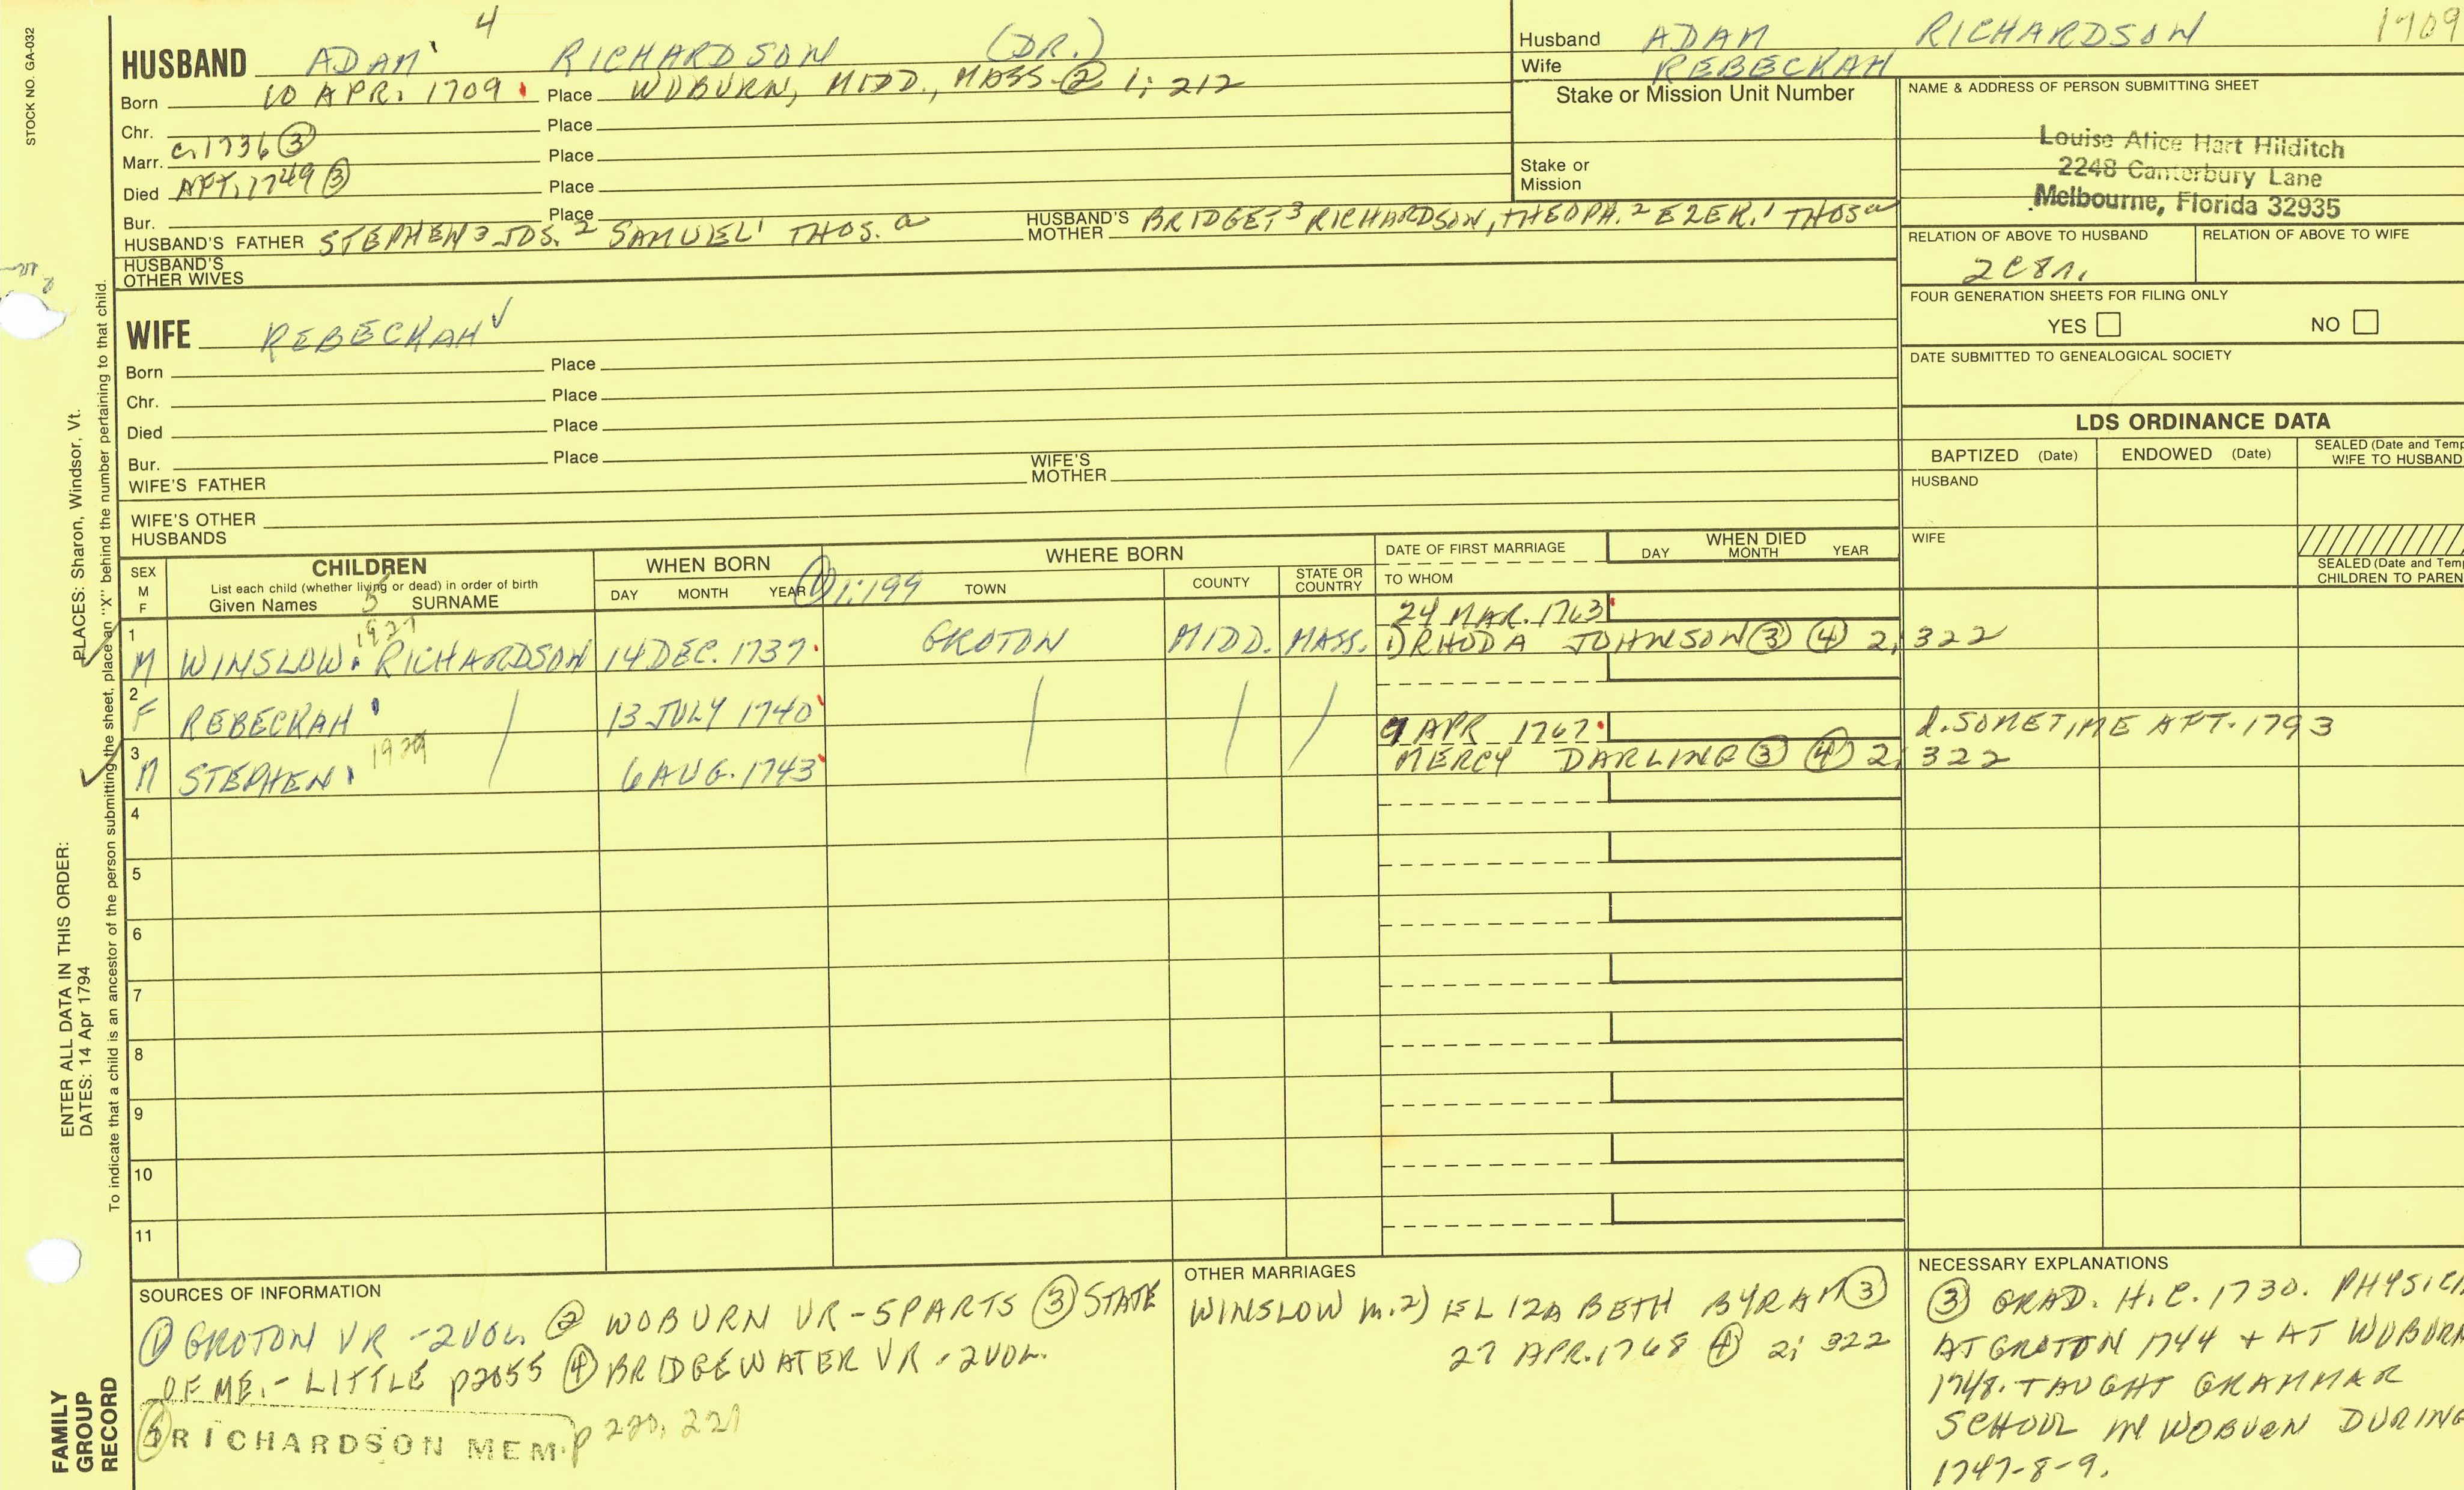 STOCK NO. GA-032
4
HUSBAND ADAM RICHARDSON (DR.)
Born 10 APR. 1709 Place WOBURN, MIDD., MASS ② 1; 212
Chr. Place
Marr. c. 1736 ③ Place
Died AFT. 1749 ③ Place
Bur. Place
HUSBAND'S FATHER STEPHEN 3 JOS. 2 SAMUEL 1 THOS. a HUSBAND'S MOTHER BRIDGET 3 RICHARDSON, THEOPH. 2 EZER. 1 THOS a
HUSBAND'S OTHER WIVES
WIFE REBECKAH ✓
Born Place
Chr. Place
Died Place
Bur. Place
WIFE'S FATHER WIFE'S MOTHER
WIFE'S OTHER HUSBANDS
Husband ADAM RICHARDSON 1709
Wife REBECKAH
Stake or Mission Unit Number
Stake or Mission
NAME & ADDRESS OF PERSON SUBMITTING SHEET
Louise Alice Hart Hilditch
2248 Canterbury Lane
Melbourne, Florida 32935
RELATION OF ABOVE TO HUSBAND RELATION OF ABOVE TO WIFE
2C8r.
FOUR GENERATION SHEETS FOR FILING ONLY
YES NO
DATE SUBMITTED TO GENEALOGICAL SOCIETY
LDS ORDINANCE DATA
BAPTIZED (Date) ENDOWED (Date) SEALED (Date and Temp
WIFE TO HUSBAND
HUSBAND
WIFE
SEALED (Date and Tem
CHILDREN TO PAREN
SEX M F
CHILDREN
List each child (whether living or dead) in order of birth
Given Names SURNAME
5
WHEN BORN
DAY MONTH YEAR
WHERE BORN
① 1:199 TOWN COUNTY STATE OR COUNTRY
DATE OF FIRST MARRIAGE
TO WHOM
WHEN DIED
DAY MONTH YEAR
24 MAR. 1763
1 M WINSLOW RICHARDSON 14 DEC. 1737 GROTON MIDD. MASS. 1) RHODA JOHNSON ③ ④ 2, 322
2 F REBECKAH / 13 JULY 1740 / / /
9 APR 1767 d. SOMETIME AFT. 1793
3 M STEPHEN 6 AUG. 1743 MERCY DARLING ③ ④ 2, 322
4
5
6
7
8
9
10
11
SOURCES OF INFORMATION
① GROTON VR - 2 VOL. ② WOBURN VR - 5 PARTS ③ STATE
OF ME. - LITTLE p2055 ④ BRIDGEWATER VR - 2 VOL.
RICHARDSON MEM. p 220, 221
OTHER MARRIAGES
WINSLOW m. 2) ELIZABETH BYRAM ③
27 APR. 1768 ④ 2; 322
NECESSARY EXPLANATIONS
③ GRAD. H.C. 1730. PHYSICI
AT GROTON 1744 + AT WOBURN
1748. TAUGHT GRAMMAR
SCHOOL IN WOBURN DURING
1747-8-9.
PLACES: Sharon, Windsor, Vt.
ENTER ALL DATA IN THIS ORDER:
DATES: 14 Apr 1794
To indicate that a child is an ancestor of the person submitting the sheet, place an "X" behind the number pertaining to that child.
FAMILY
GROUP
RECORD